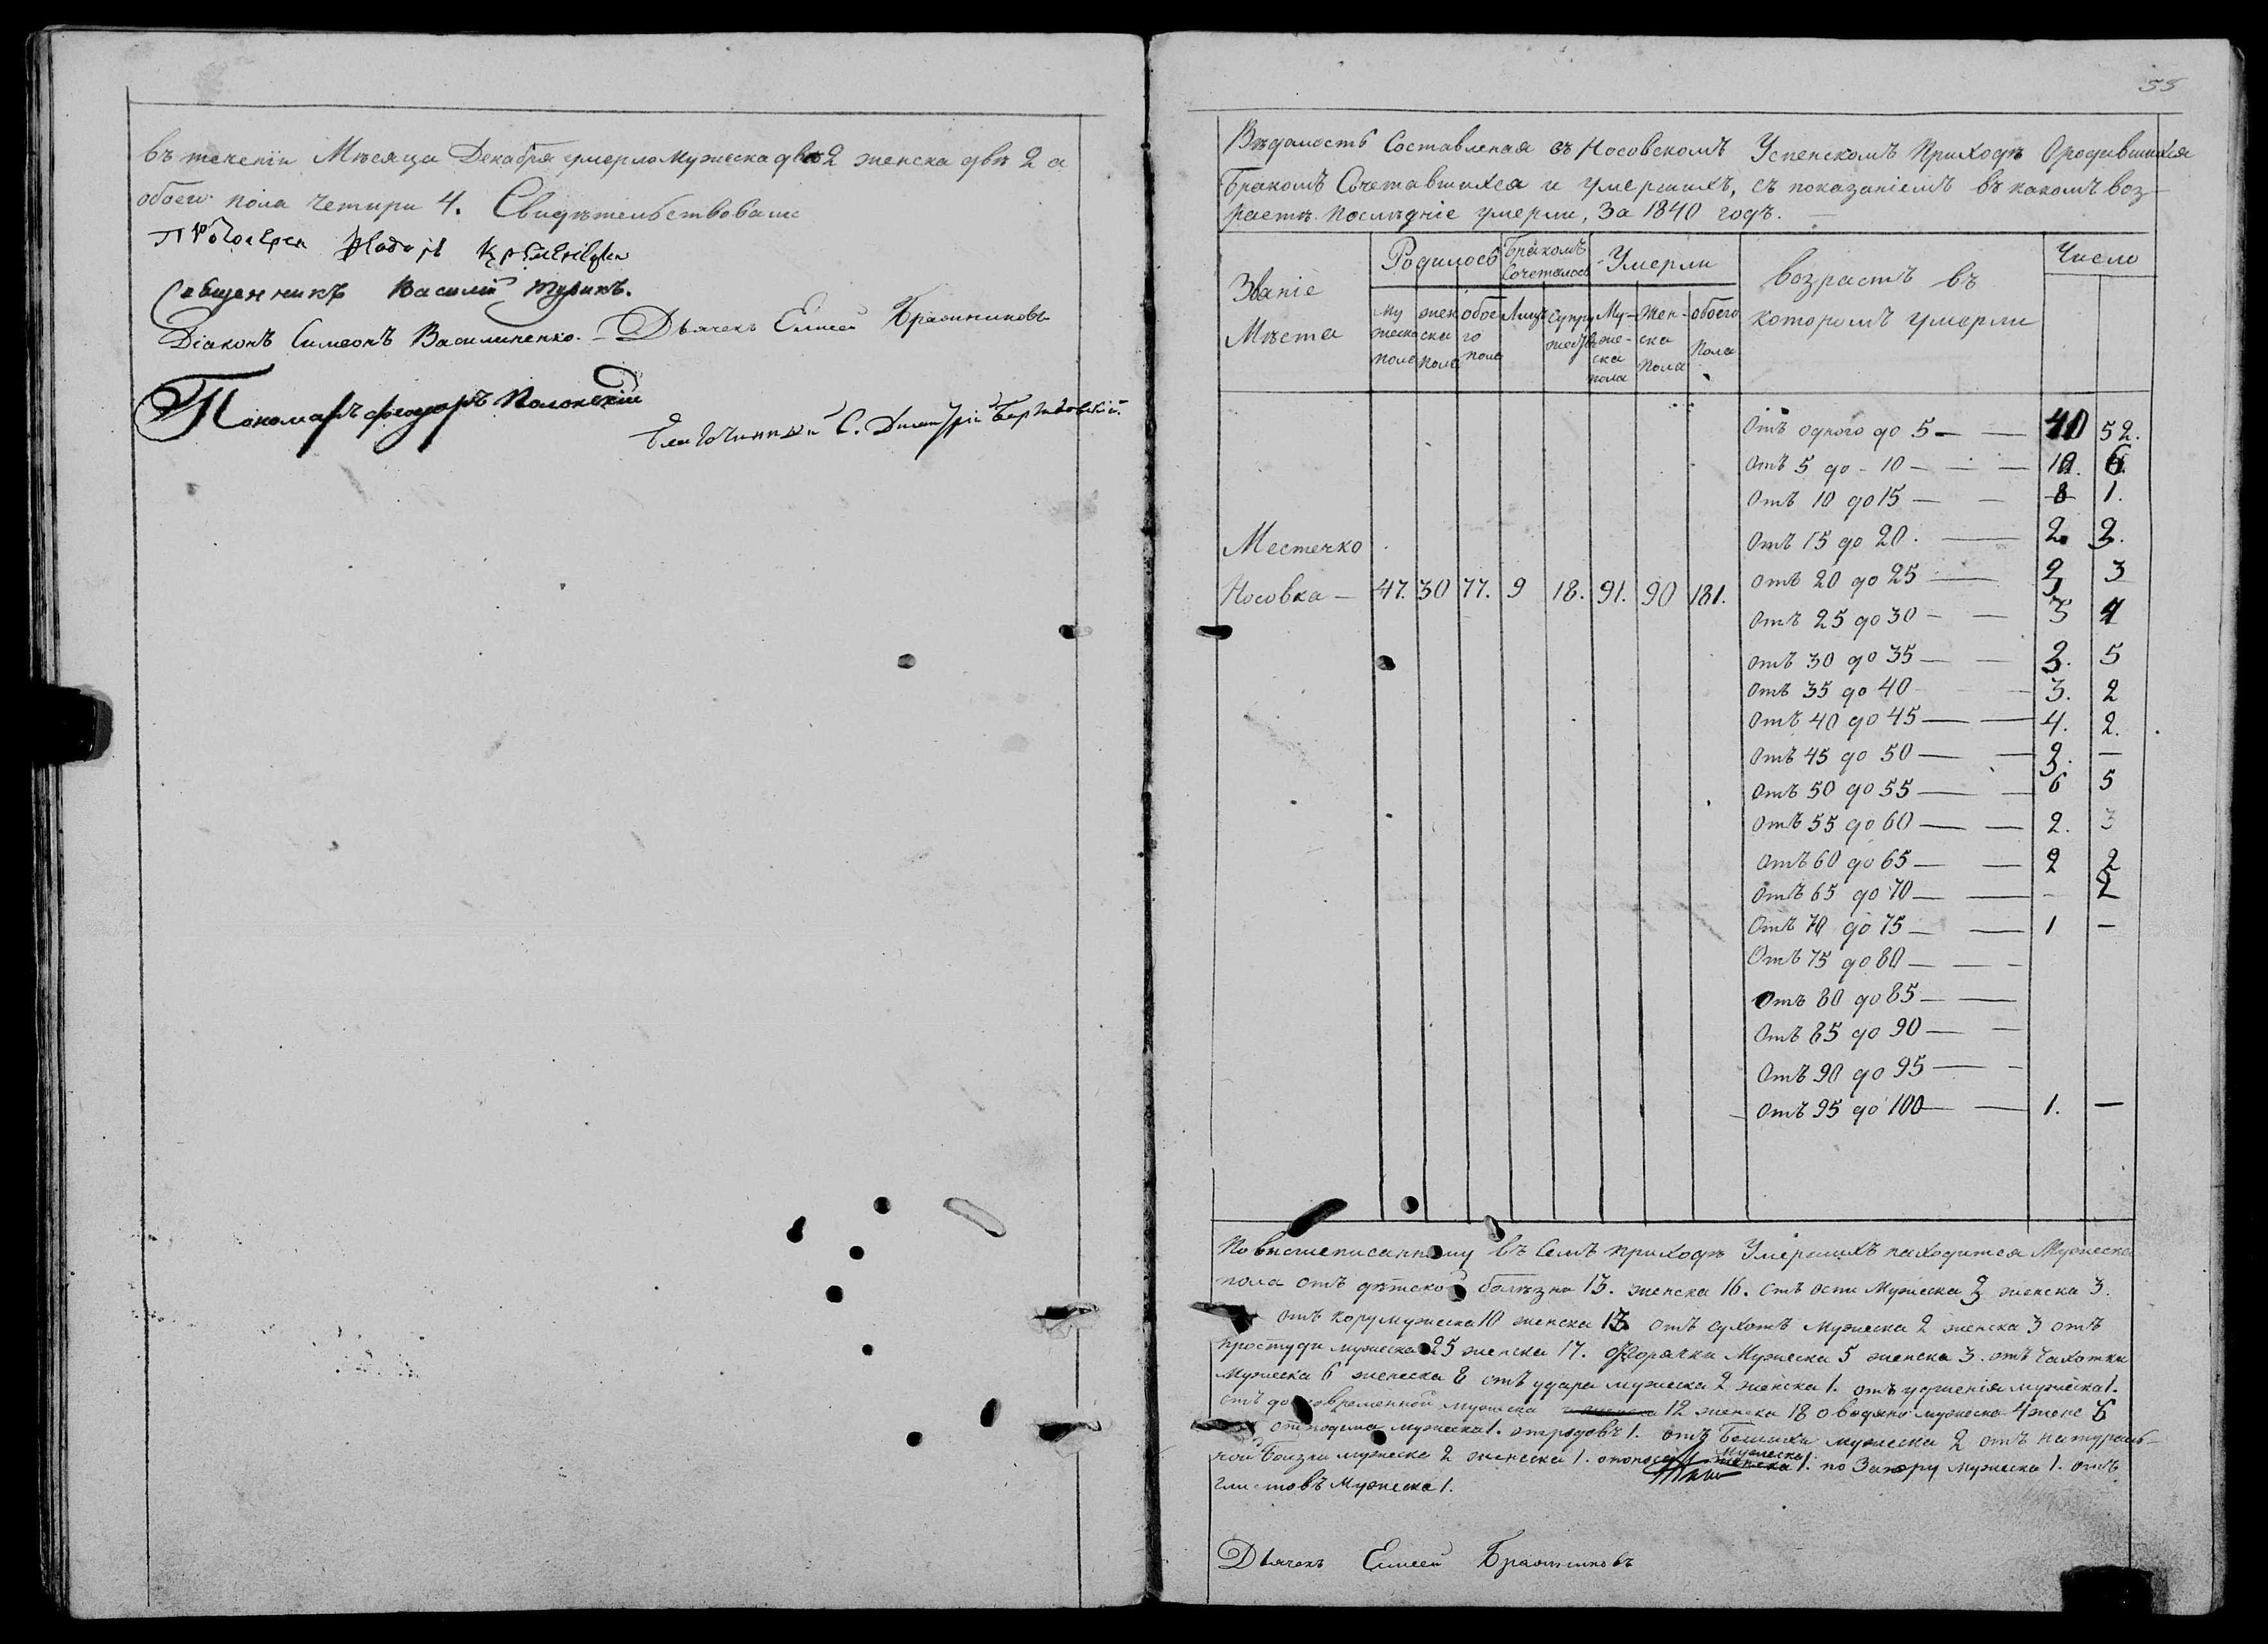 въ течении Мѣсяца Декабря умерло Мужеска два 2 женска двѣ 2 а
обоего пола четыри 4. Свидѣтельствовали
Протоіерей
Священникъ Василій
Діаконъ Симеонъ Василиненко. Дьячекъ Елисей Бражниковъ
Пономарь Феодоръ Полонскій
Благочинный С. Димитрій
55
Вѣдомость Составленая въ Носовскомъ Успенскомъ Приходѣ О родившихся
Бракомъ Сочетавшихся и умершихъ, съ показаніемъ въ какомъ воз-
растѣ послѣдніе умерли, За 1840 годъ.
Званіе Мѣста
Родилось
Бракомъ Сочеталось
Умерли
возрастъ въ которомъ умерли
Число
му жеска пола
жен ска пола
обое го пола
Лицъ
Супру жествъ
Му- же- ска пола
Жен- ска пола
обоего Пола
Отъ одного до 5 — — 40 52.
Отъ 5 до 10 — — 6.
Отъ 10 до 15 — — 8 1.
Отъ 15 до 20. — 2. 2.
Отъ 20 до 25 — 3
Отъ 25 до 30 — — 3 4
Отъ 30 до 35 — — 5
Отъ 35 до 40 — 3. 2
Отъ 40 до 45 — — 4. 2.
Отъ 45 до 50 — — —
Отъ 50 до 55 — — 6 5
Отъ 55 до 60 — — 2. 3
Отъ 60 до 65 — — 2 2
Отъ 65 до 70 — — - 2
Отъ 70 до 75 — — 1 —
Отъ 75 до 80 — — -
Отъ 80 до 85 — —
Отъ 85 до 90 — —
Отъ 90 до 95 — -
Отъ 95 до 100 — — 1. —
Местечко
Носовка — 47. 30 77. 9 18. 91. 90 181.
По вышеписанному въ Семъ приходѣ Умершихъ находится Мужеска
пола отъ дѣтской болѣзна 13. женска 16. отъ оспи Мужеска женска 3.
отъ кору мужеска 10 женска 13 отъ сухотъ мужеска 2 женска 3 отъ
простуди мужеска 25 женска 17. Мужеска 5 женска 3. отъ чахотки
Мужеска 6 женска 8 отъ удара мужеска 2 женска 1. отъ мужеска 1.
отъ мужеска 12 женска 18 мужеска 4 женс 6
мужеска 1. отродовъ 1. отъ мужеска 2 отъ натураль-
ной мужеска 2 женска 1. мужеска 1. по Запору мужеска 1. отъ
глистовъ Мужеска 1.
Дьячекъ Елисей Бражниковъ